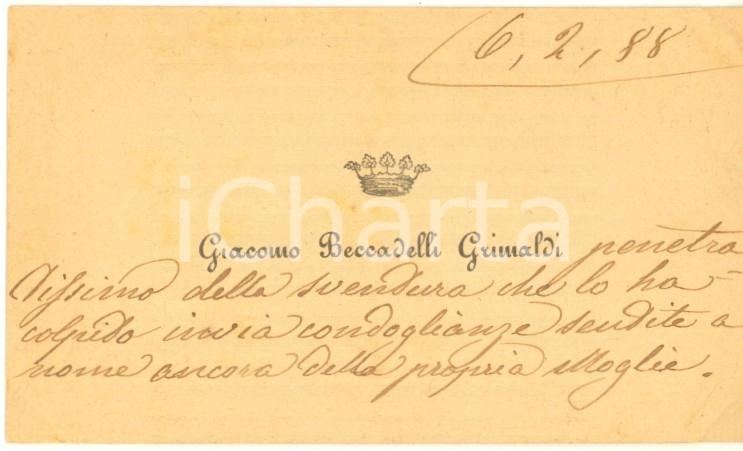 6, 2, 88
iCharta
Giacomo Beccadelli Grimaldi penetra
tissimo della sventura che lo ha
colpito invia condoglianze sentite a
nome ancora della propria Moglie.